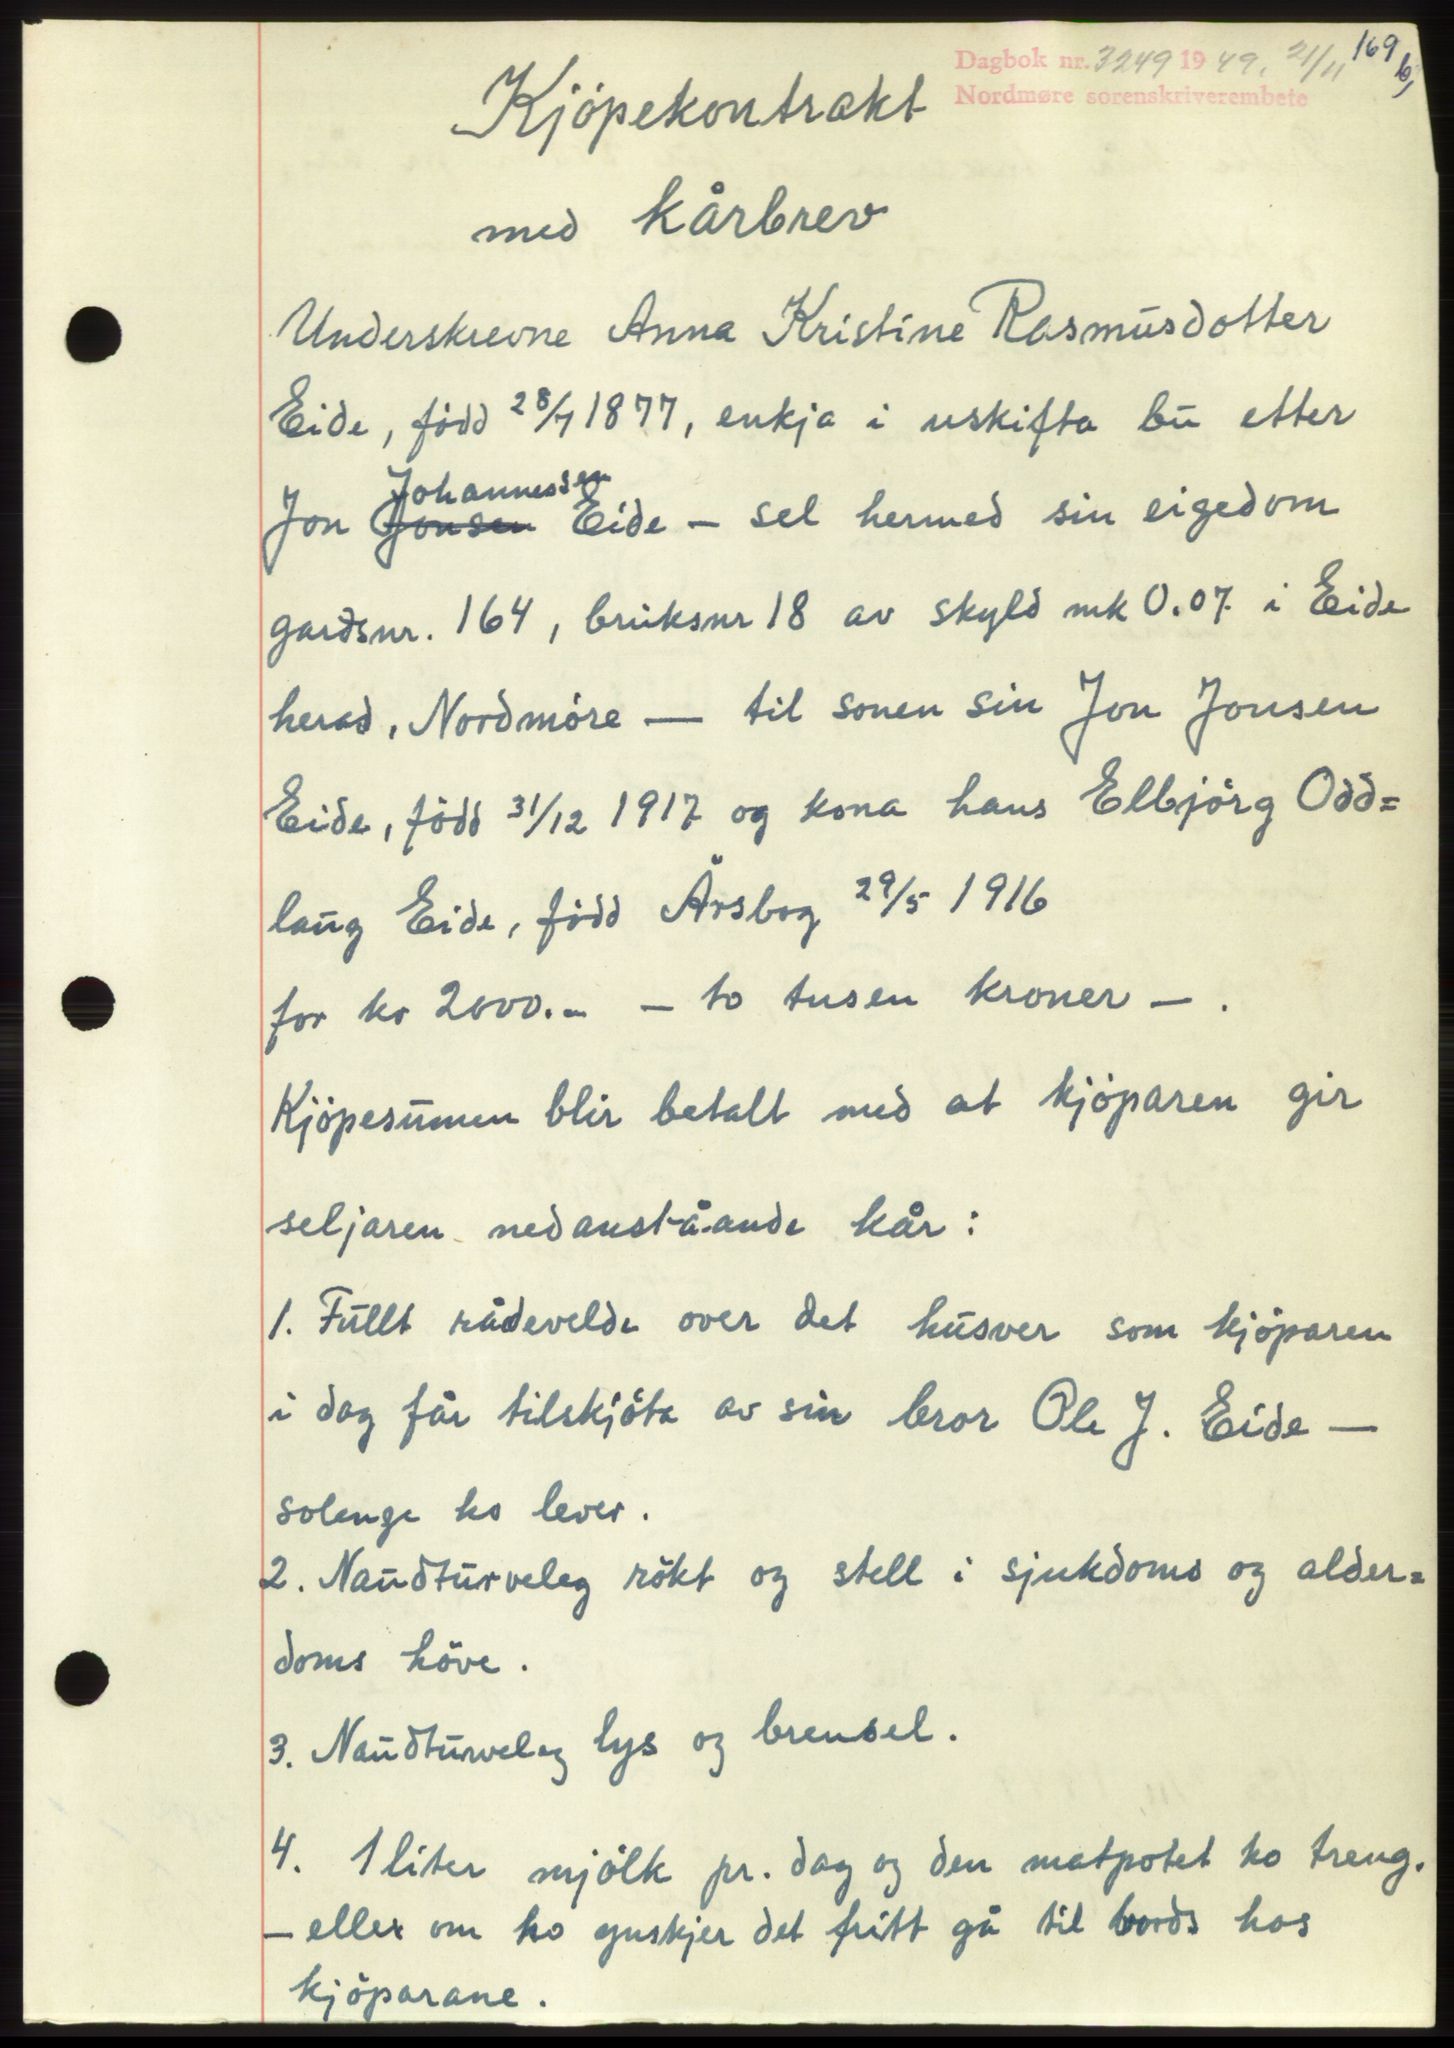 Dagbok nr. 3249 1949. 21/11 169 b,
Nordmøre sorenskriverembete
Kjöpekontrakt
med kårbrev
Underskrevne Anna Kristine Rasmusdotter
Eide, född 28/7 1877, enkja i uskifta bu etter
Johannessen
Jon Jonsen Eide — sel hermed sin eigedom
gardsnr. 164, bruksnr 18 av skyld mk 0.07 i Eide
herad, Nordmöre — til sonen sin Jon Jonsen
Eide, född 31/12 1917 og kona hans Elbjörg Odd=
laug Eide, född Årsbog 29/5 1916
for kr 2000.- — to tusen kroner — .
Kjöpesummen blir betalt med at kjöparen gir
seljaren nedanståande kår:
1. Fullt rådevelde over det husver som kjöparen
i dag får tilskjöta av sin bror Ole J. Eide —
solenge ho lever.
2. Naudturveleg rökt og stell i sjukdoms og alder=
doms höve.
3. Naudturveleg lys og brensel.
4. 1 liter mjölk pr. dag og den matpotet ho treng.
— eller om ho ynskjer det fritt gå til bords hos
kjöparane.